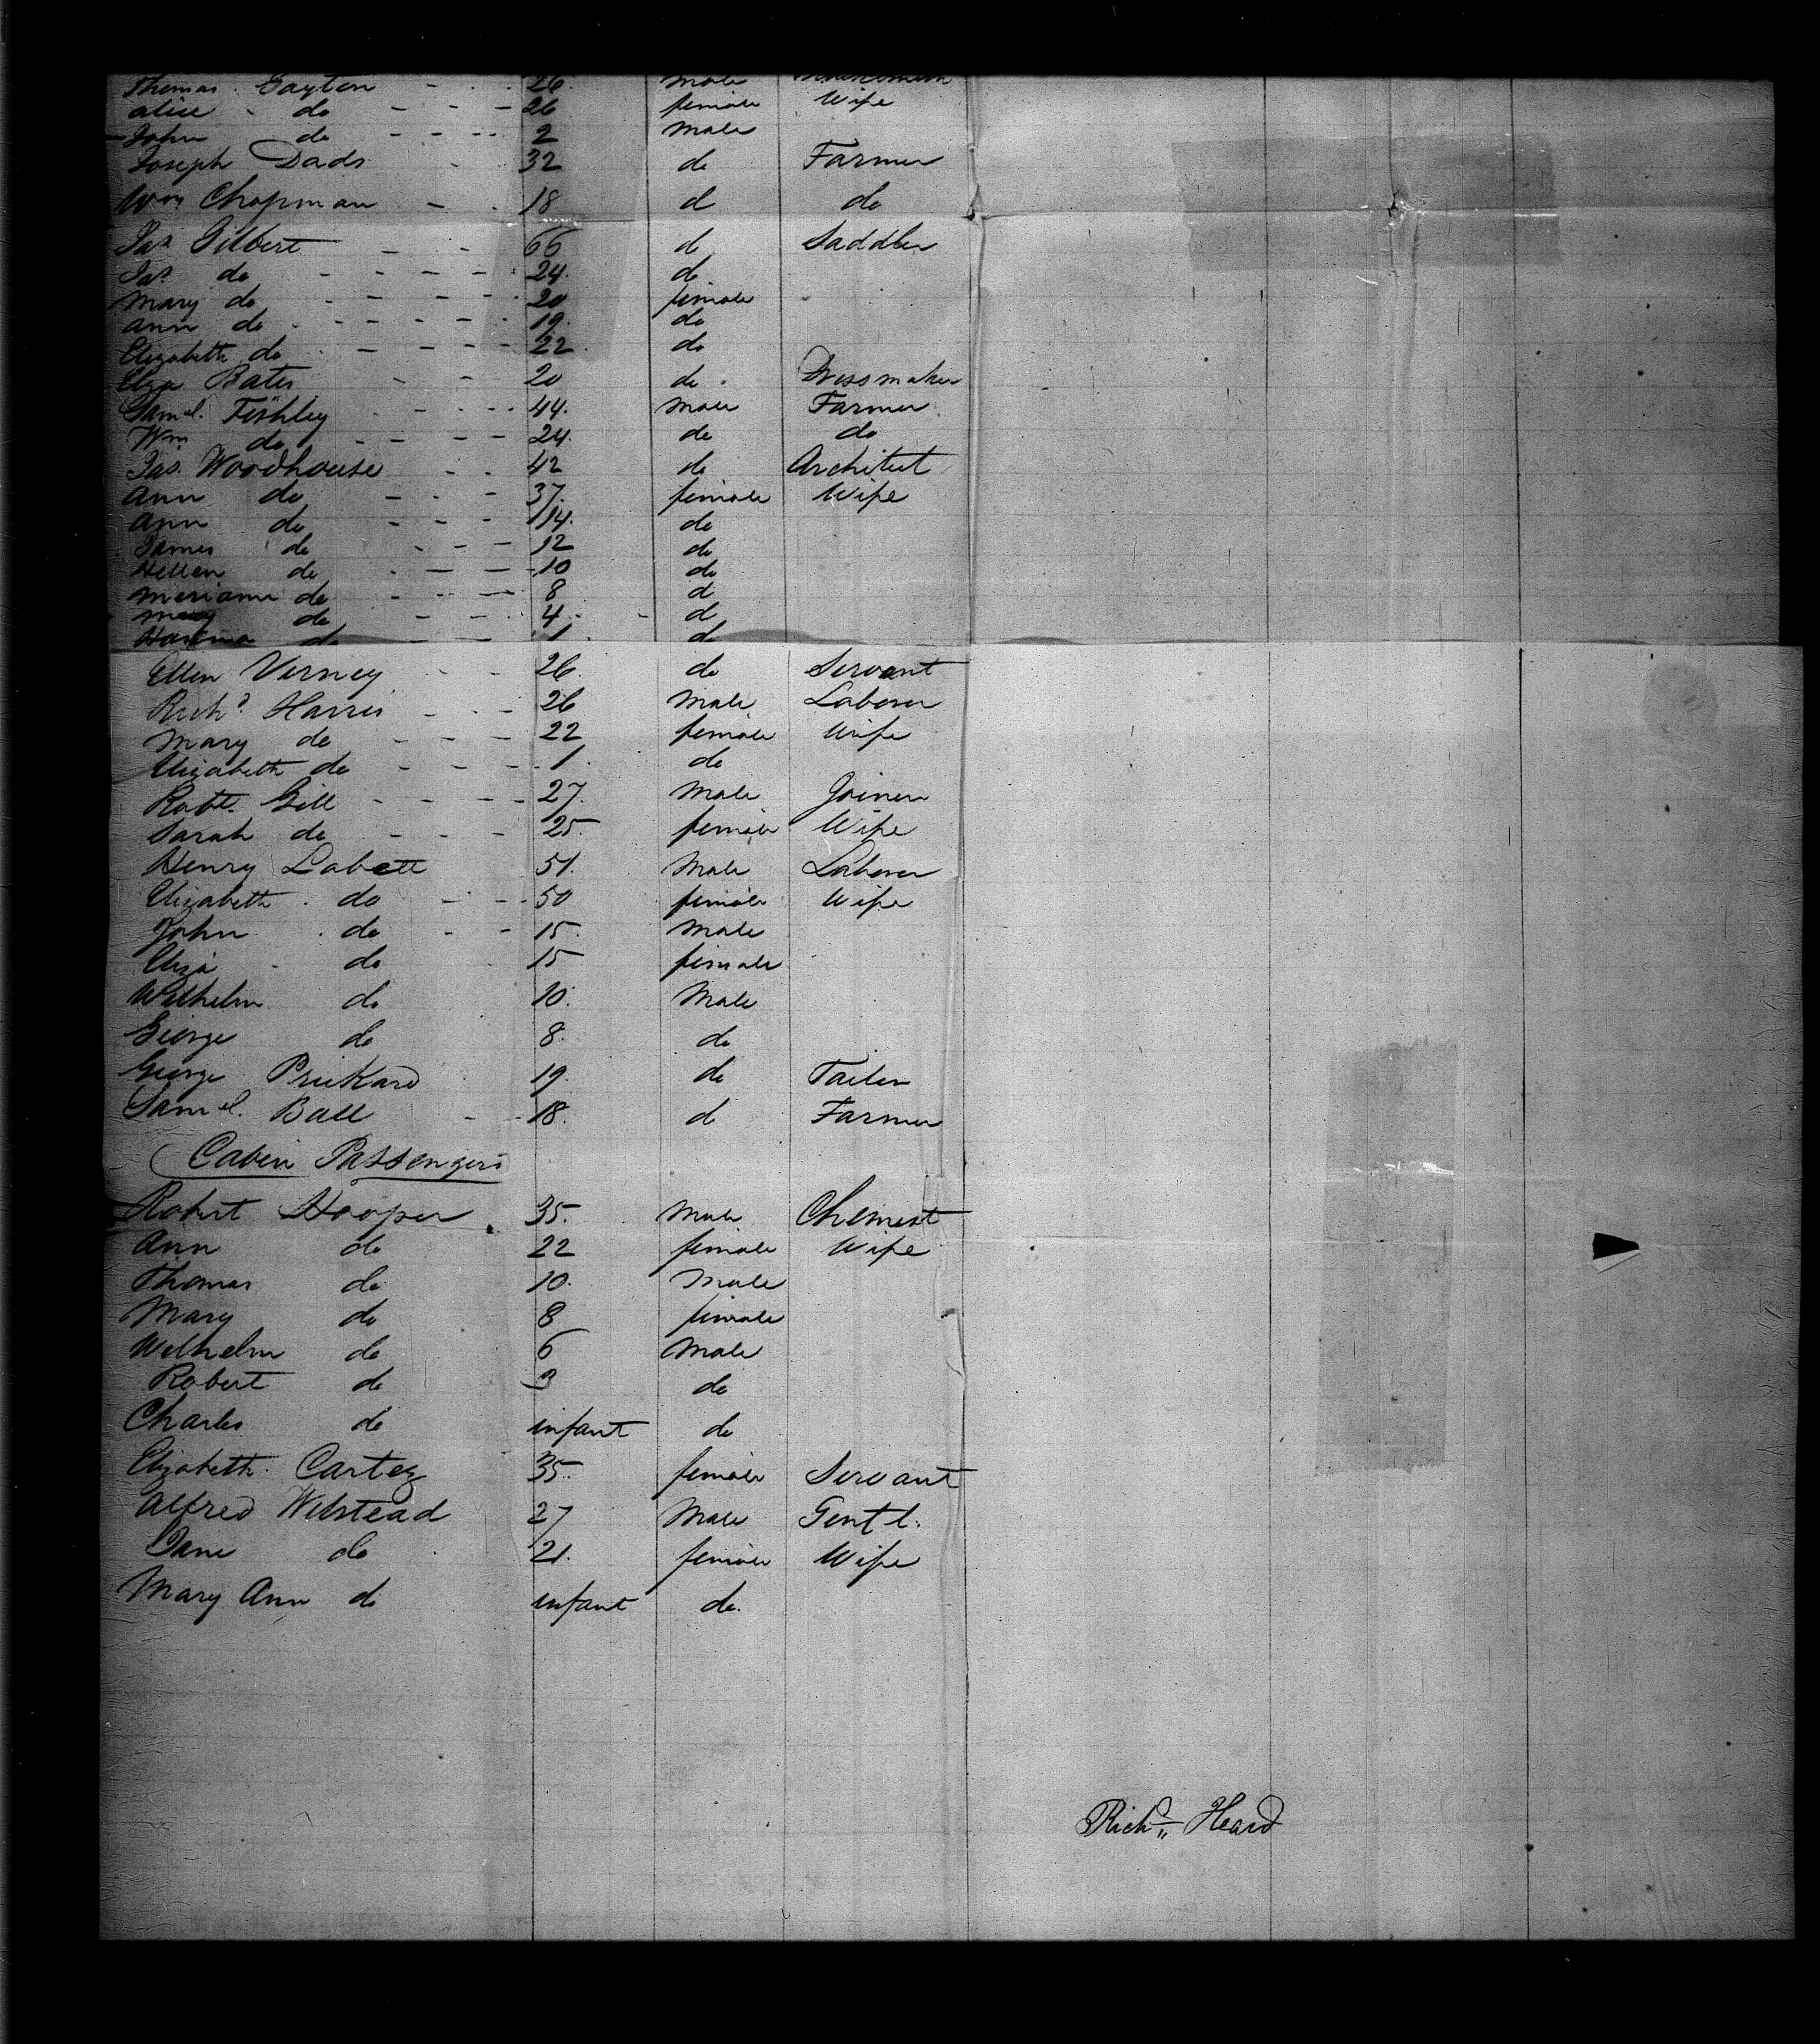 Thomas Gayton 26 male
Alice do 26 female Wife
John do 2 male
Joseph Dads 32 do Farmer
Wm Chapman 18 d do
Jas Gilbert 66 d Saddler
Jas do 24 do
Mary do 20 female
Ann do 19 do
Elizabeth do 22 do
Eliza Bates 20 do Dressmaker
Saml. Fishley 44 male Farmer
Wm do 24 do do
Jas. Woodhouse 42 do Architect
Ann do 37 female Wife
Ann do 14 do
James do 12 do
Hellen do 10 do
Meriam do 8 d
Mary do 4 d
do 1 do
Ellen Verney 26 do Servant
Richd Harris 26 male Laborer
Mary do 22 female Wife
Elizabeth do 1 do
Robt. Gill 27 male Joiner
Sarah do 25 female Wife
Henry Labett 51 male Laborer
Elizabeth do 50 female Wife
John do 15 male
Eliza do 15 female
Wilhelm do 10 male
George do 8 do
George Prickard 19 do Tailor
Saml. Ball 18 d Farmer
Cabin Passengers
Robert Hooper 35 male Chemist
Ann do 22 female Wife
Thomas do 10 male
Mary do 8 female
Wilhelm do 6 male
Robert do 3 do
Charles do infant do
Elizabeth Carter 35 female Servant
Alfred Wilstead 27 male Gentl.
Jane do 21 female Wife
Mary Ann do infant do
Richd Heard